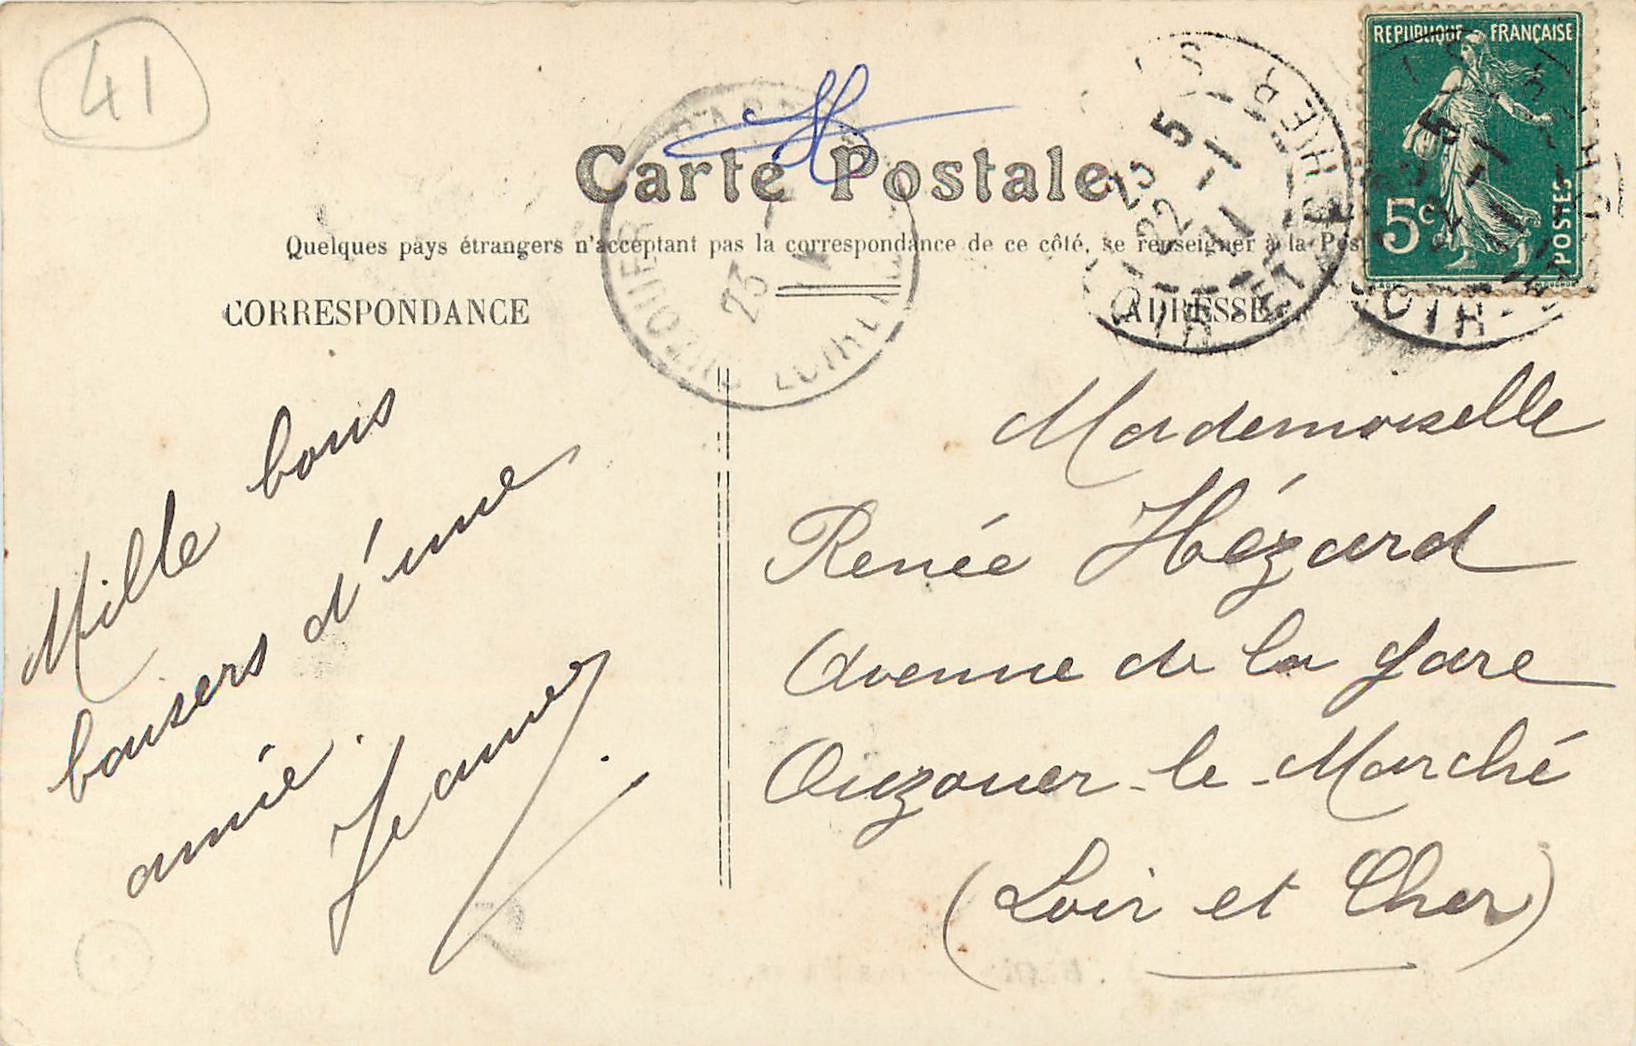 41
REPUBLIQUE FRANÇAISE
5c
POSTES
Carte Postale
Quelques pays étrangers n'acceptant pas la correspondance de ce côté, se renseigner à la
CORRESPONDANCE
ADRESSE
5
22 - 1
11
LOIR-ET-CHER
23
Mille bons
baisers d'une
amie.
Jeanne
Mademoiselle
Renée Hézard
Avenue de la gare
Ouzouer-le-Marché
(Loir et Cher)